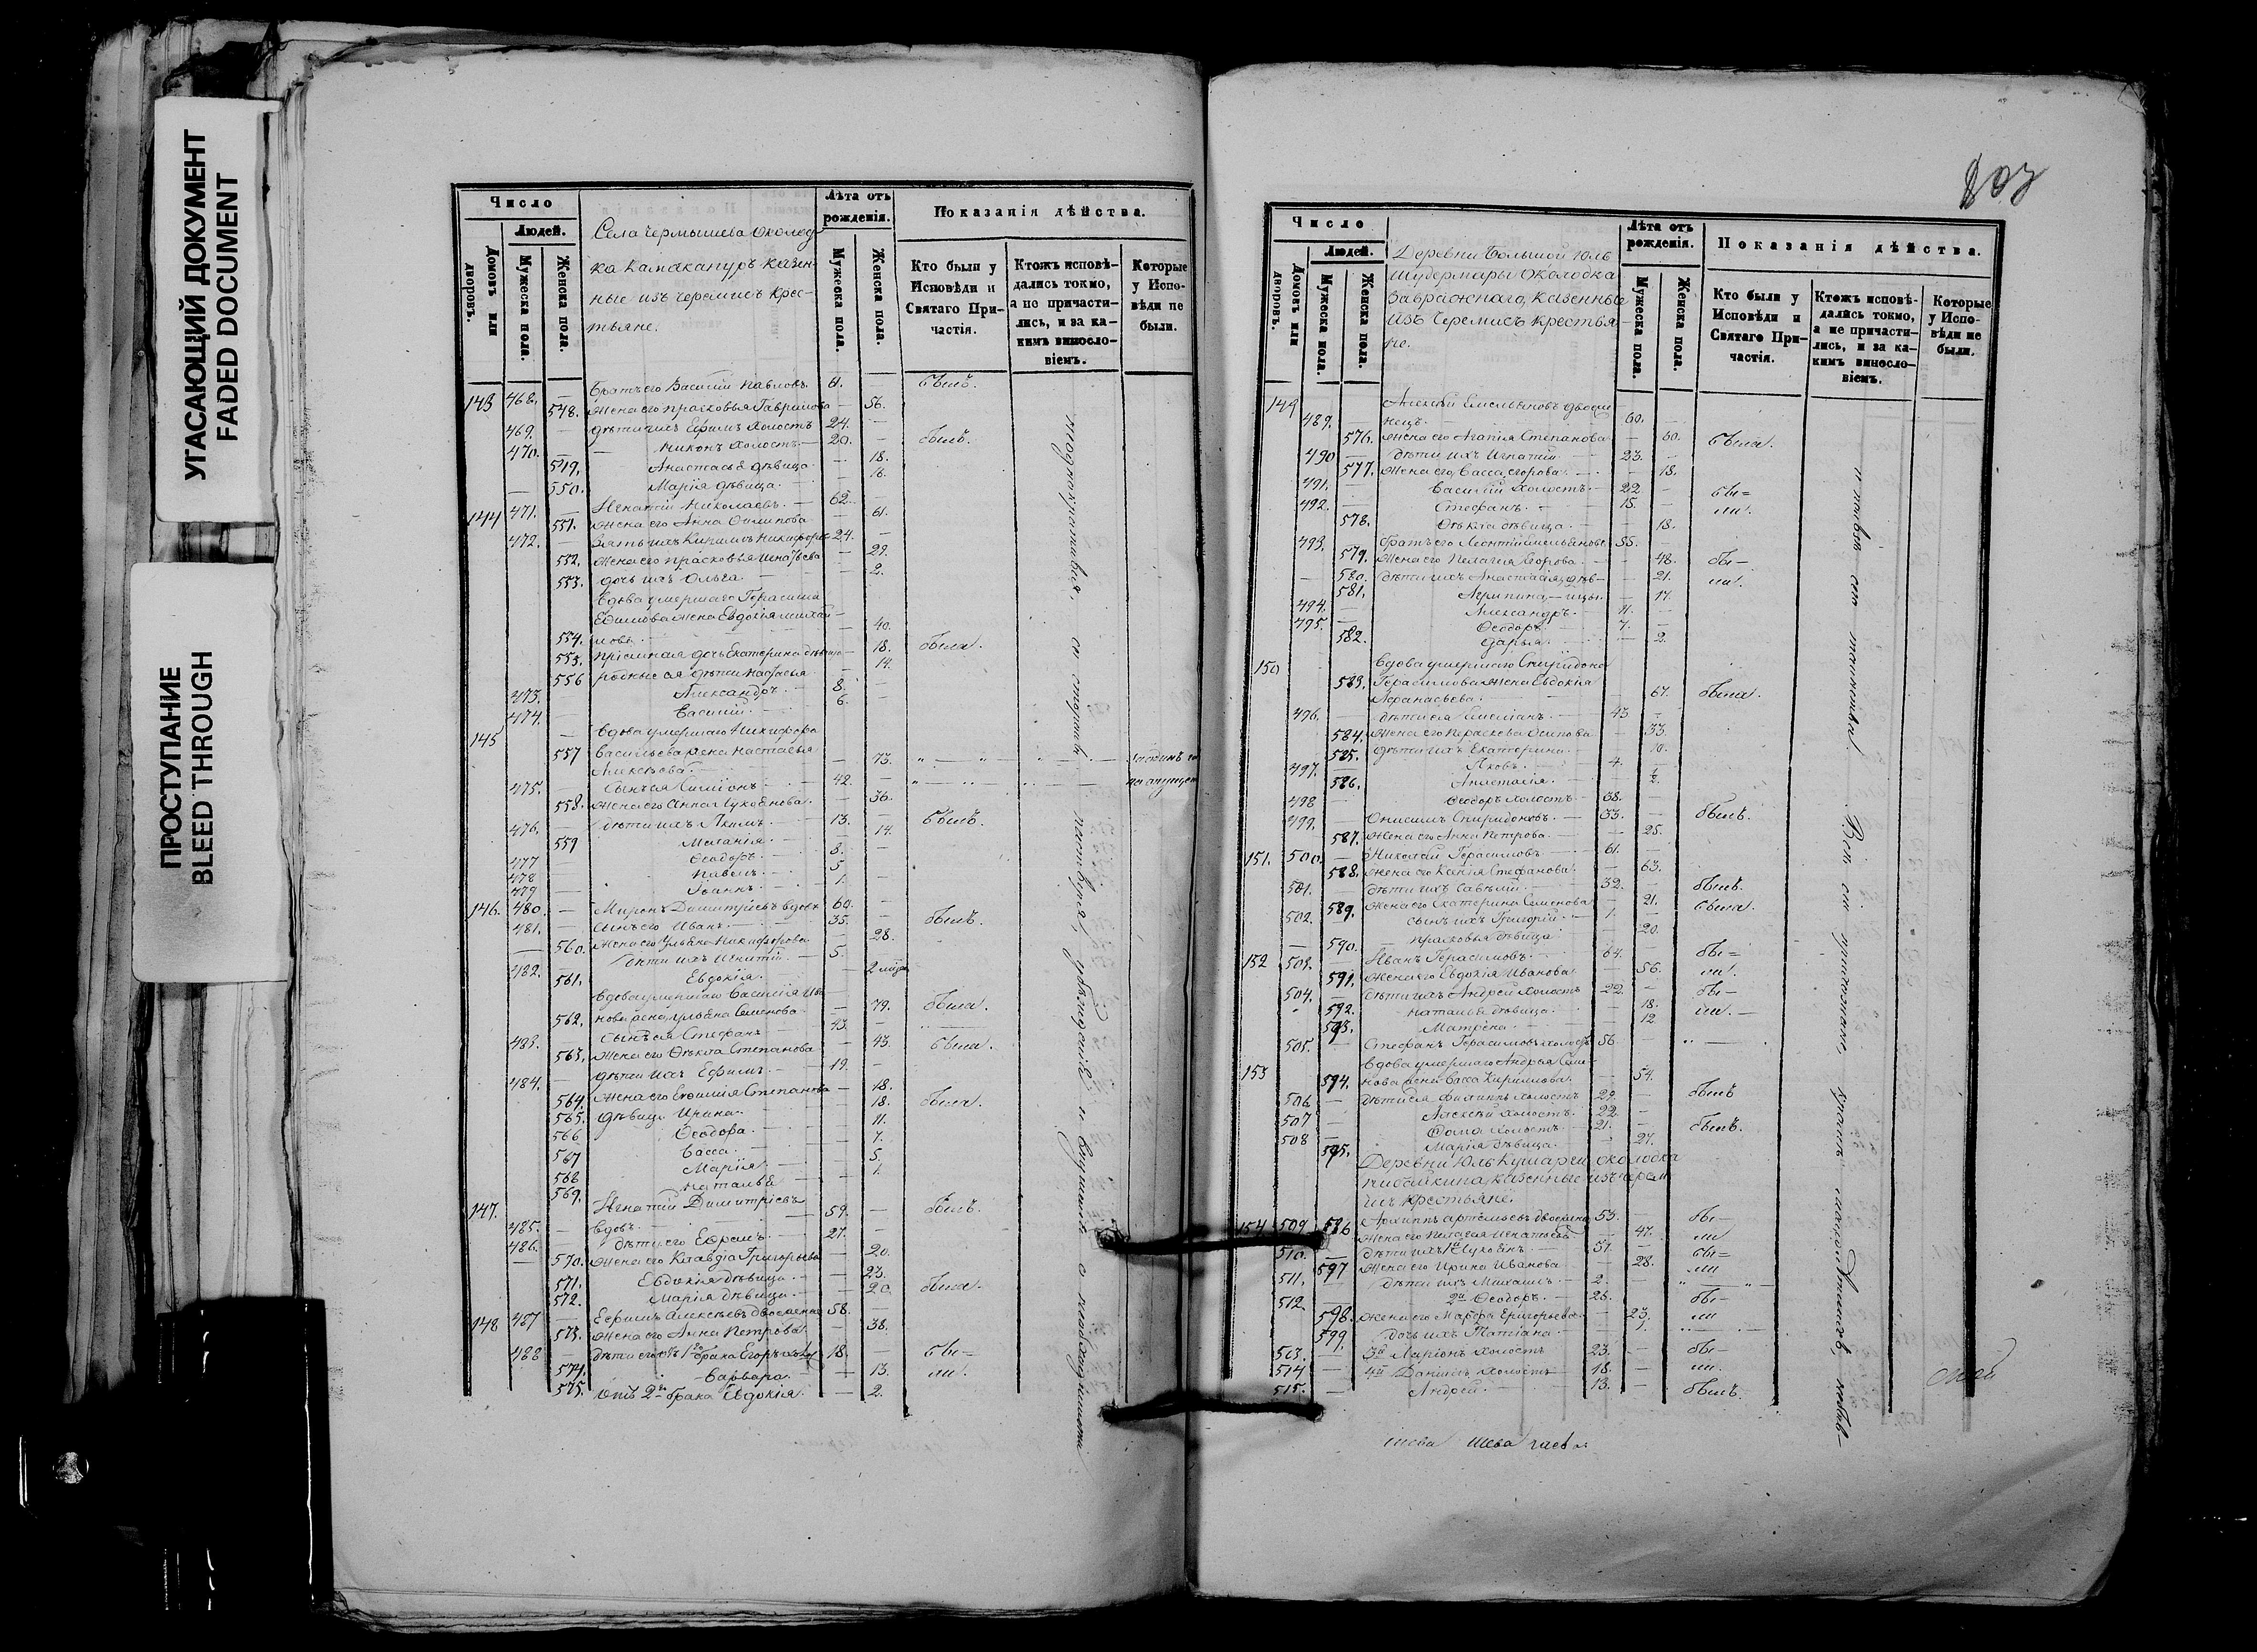 УГАСАЮЩИЙ ДОКУМЕНТ
FADED DOCUMENT
ПРОСТУПАНИЕ
BLEED THROUGH
Число
Людей.
Домовъ или дворовъ.
Мужеска пола.
Женска пола.
Села Чермышева околод
ка Камакануръ казен-
ные изъ черемисъ крес-
тьяне.
Лѣта отъ рожденія.
Мужеска пола.
Женска пола.
Показанія дѣйства.
Кто были у Исповѣди и Святаго Причастія.
Ктожъ исповѣдались токмо, а не причастились, и за какимъ винословіемъ.
Которые у Исповѣди не были.
143 468. Братъ его Василій Павловъ 61. былъ.
548. Жена его Прасковья Гаврилова 56.
469. дѣти ихъ Ефимъ холостъ 24.
470. Никонъ холостъ 20. былъ.
549. Анастасья дѣвица 18.
550. Марія дѣвица 16.
144 471. Игнатій Николаевъ 62.
551. Жена его Анна 61.
472. Зять ихъ Кириллъ Никифоровъ 24.
552. Жена его Прасковья Игнатьева 29.
553. дочь ихъ Ольга 2.
Вдова умершаго Герасима
Ефимова жена Евдокія Михай
554. лова 40.
555. пріемная дочь Екатерина дѣвица 18. была.
556 родные ея дѣти Настасья 14.
473. Александръ 8.
474. Василій 6.
145 Вдова умершаго Никифора
557 Васильева жена Настасья
Алексѣева 73.
475. Сынъ ея Симіонъ 42.
558. Жена его Анна Лукоянова 36.
476. дѣти их Акимъ 13. былъ.
559 Маланія 14.
477 Ѳеодоръ 8.
478 Павелъ 5
479 Іоаннъ 1.
146. 480. Миронъ Димитріевъ вдовъ 60.
481. Сынъ его Иванъ 35. былъ.
560. Жена его Ульяна Никифорова 28.
482. Дѣти ихъ Игнатій 5.
561. Евдокія 2 мѣсяц
Вдова умершаго Василія Ива
562. нова жена Ульяна Семенова 79. была.
483. Сынъ ея Стефанъ 43.
563. Жена его Ѳекла Степанова 43 была.
484. Дѣти ихъ Ефимъ 19.
564. Жена его Евфимія Степанова 18.
565. Дѣвица Ирина 18. была.
566 Ѳеодора 11.
567 Васса 7.
568 Марія 5.
569. Наталья 1.
147. Игнатій Димитріевъ
485. вдовъ 59. былъ.
486. дѣти его Ефремъ 27.
570. Жена его Клавдія Григорьева 20.
571. Евдокія дѣвица 23.
572. Марія дѣвица 20. была.
148 487 Ефимъ Алексѣевъ двоеженецъ 58.
573. Жена его Анна Петрова 38.
488 дѣти его отъ 1го брака Егоръ хол 18. бы=
574. Варвара 13. ли.
575. Отъ 2го брака Евдокія 2.
Число
Людей.
Домовъ или дворовъ.
Мужеска пола.
Женска пола.
Деревни Большой Юль
Шудермары околодка
Завражнаго, казенные
изъ черемисъ крестья
не.
Лѣта отъ рожденія.
Мужеска пола.
Женска пола.
Показанія дѣйства.
Кто были у Исповѣди и Святаго Причастія.
Ктожъ исповѣдались токмо, а не причастились, и за какимъ винословіемъ.
Которые у Исповѣди не были.
149 Алексѣй Емельяновъ двоеже
489. нецъ. 60.
576. Жена его Агапія Степанова 60. была.
490 Дѣти ихъ Игнатій 23.
577. Жена его, Васса Егорова 18.
491. Василій холостъ 22 бы=
492. Стефанъ 15. ли.
578. Ѳекла дѣвица 18.
493. Братъ его Леонтій Емельяновъ 55.
579. Жена его Пелагія Егорова 48. бы-
580. Дѣти ихъ Анастасія дѣв- 21. ли.
581. Агрипина, -ицы 17.
494. Александръ 11.
495. Ѳеодоръ 7.
582. Дарья 2.
150 Вдова умершаго Спиридона
583. Герасимова жена Евдокія
Афанасьева 67. была.
496. Дѣти ея Емеліанъ 43
584. Жена его Параскева Осипова 33.
585. Дѣти ихъ Екатерина 10.
497. Яковъ 4.
586. Анастасія ½
498 Ѳеодоръ холостъ 38.
499. Онисимъ Спиридоновъ 33. былъ.
587. Жена его Анна Петрова 25.
151. 500. Николай Герасимовъ 61.
588. Жена его Ксенія Стефанова 63.
501. Дѣти ихъ Савелій 32. былъ.
589. Жена его Екатерина Семенова 21. была.
502. Сынъ ихъ Григорій 1.
590. Прасковья дѣвица 20.
152 503. Иванъ Герасимовъ 64. бы=
591. Жена его Евдокія Иванова 56. ли.
504. Дѣти ихъ Андрей холостъ 22. бы-
592. Наталья дѣвица 18. ли.
593. Матрена 12
505. Стефанъ Герасимовъ холостъ 56.
153 Вдова умершаго Андрея Семе
594. нова жена Васса Кириллова 54.
506. Дѣти ея Филиппъ холостъ 29. былъ
507 Алексѣй холостъ 22.
508 Ѳома холостъ 21. былъ.
595. Марія дѣвица 27.
Деревни Юль Кушарги околодка
казенные изъ черем
исъ крестьяне.
154 509 Архиппъ Артемьевъ двоеженец 53. бы-
596 Жена его Пелагея Игнатьева 47. ли
510. Дѣти ихъ 1й Лукоянъ 51. бы=
597 Жена его Ирина Иванова 28. ли
511. Дѣти ихъ Михаилъ 2.
512 2й Ѳеодоръ 25. бы-
598. Жена его Марфа Григорьева 23. ли
599. Дочь ихъ Татіана 1.
513. 3й Ларіонъ холостъ 23. бы-
514 4й Даніилъ холостъ 18. ли.
515. Андрей 13. былъ.